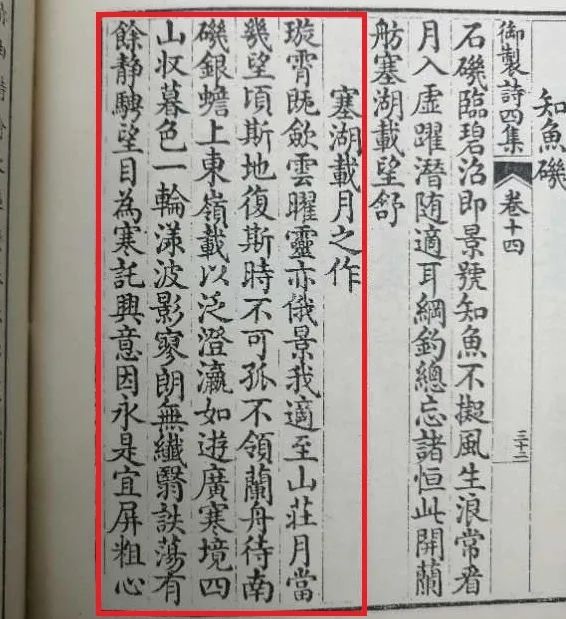 知魚磯
御製詩四集
卷十四
三十二
石磯臨碧沼即景號知魚不擬風生浪常看
月入虛躍潛随適耳綱鈎總忘諸恒此開蘭
舫塞湖載望舒
塞湖載月之作
璇霄既歛雲曜靈亦俄景我適至山莊月當
幾望頃斯地復斯時不可孤不領蘭舟待南
磯銀蟾上東嶺載以泛澄瀛如遊廣寒境四
山収暮色一輪漾波影寥朗無纖翳詄蕩有
餘静騁望目為寒託興意因永是宜屏粗心